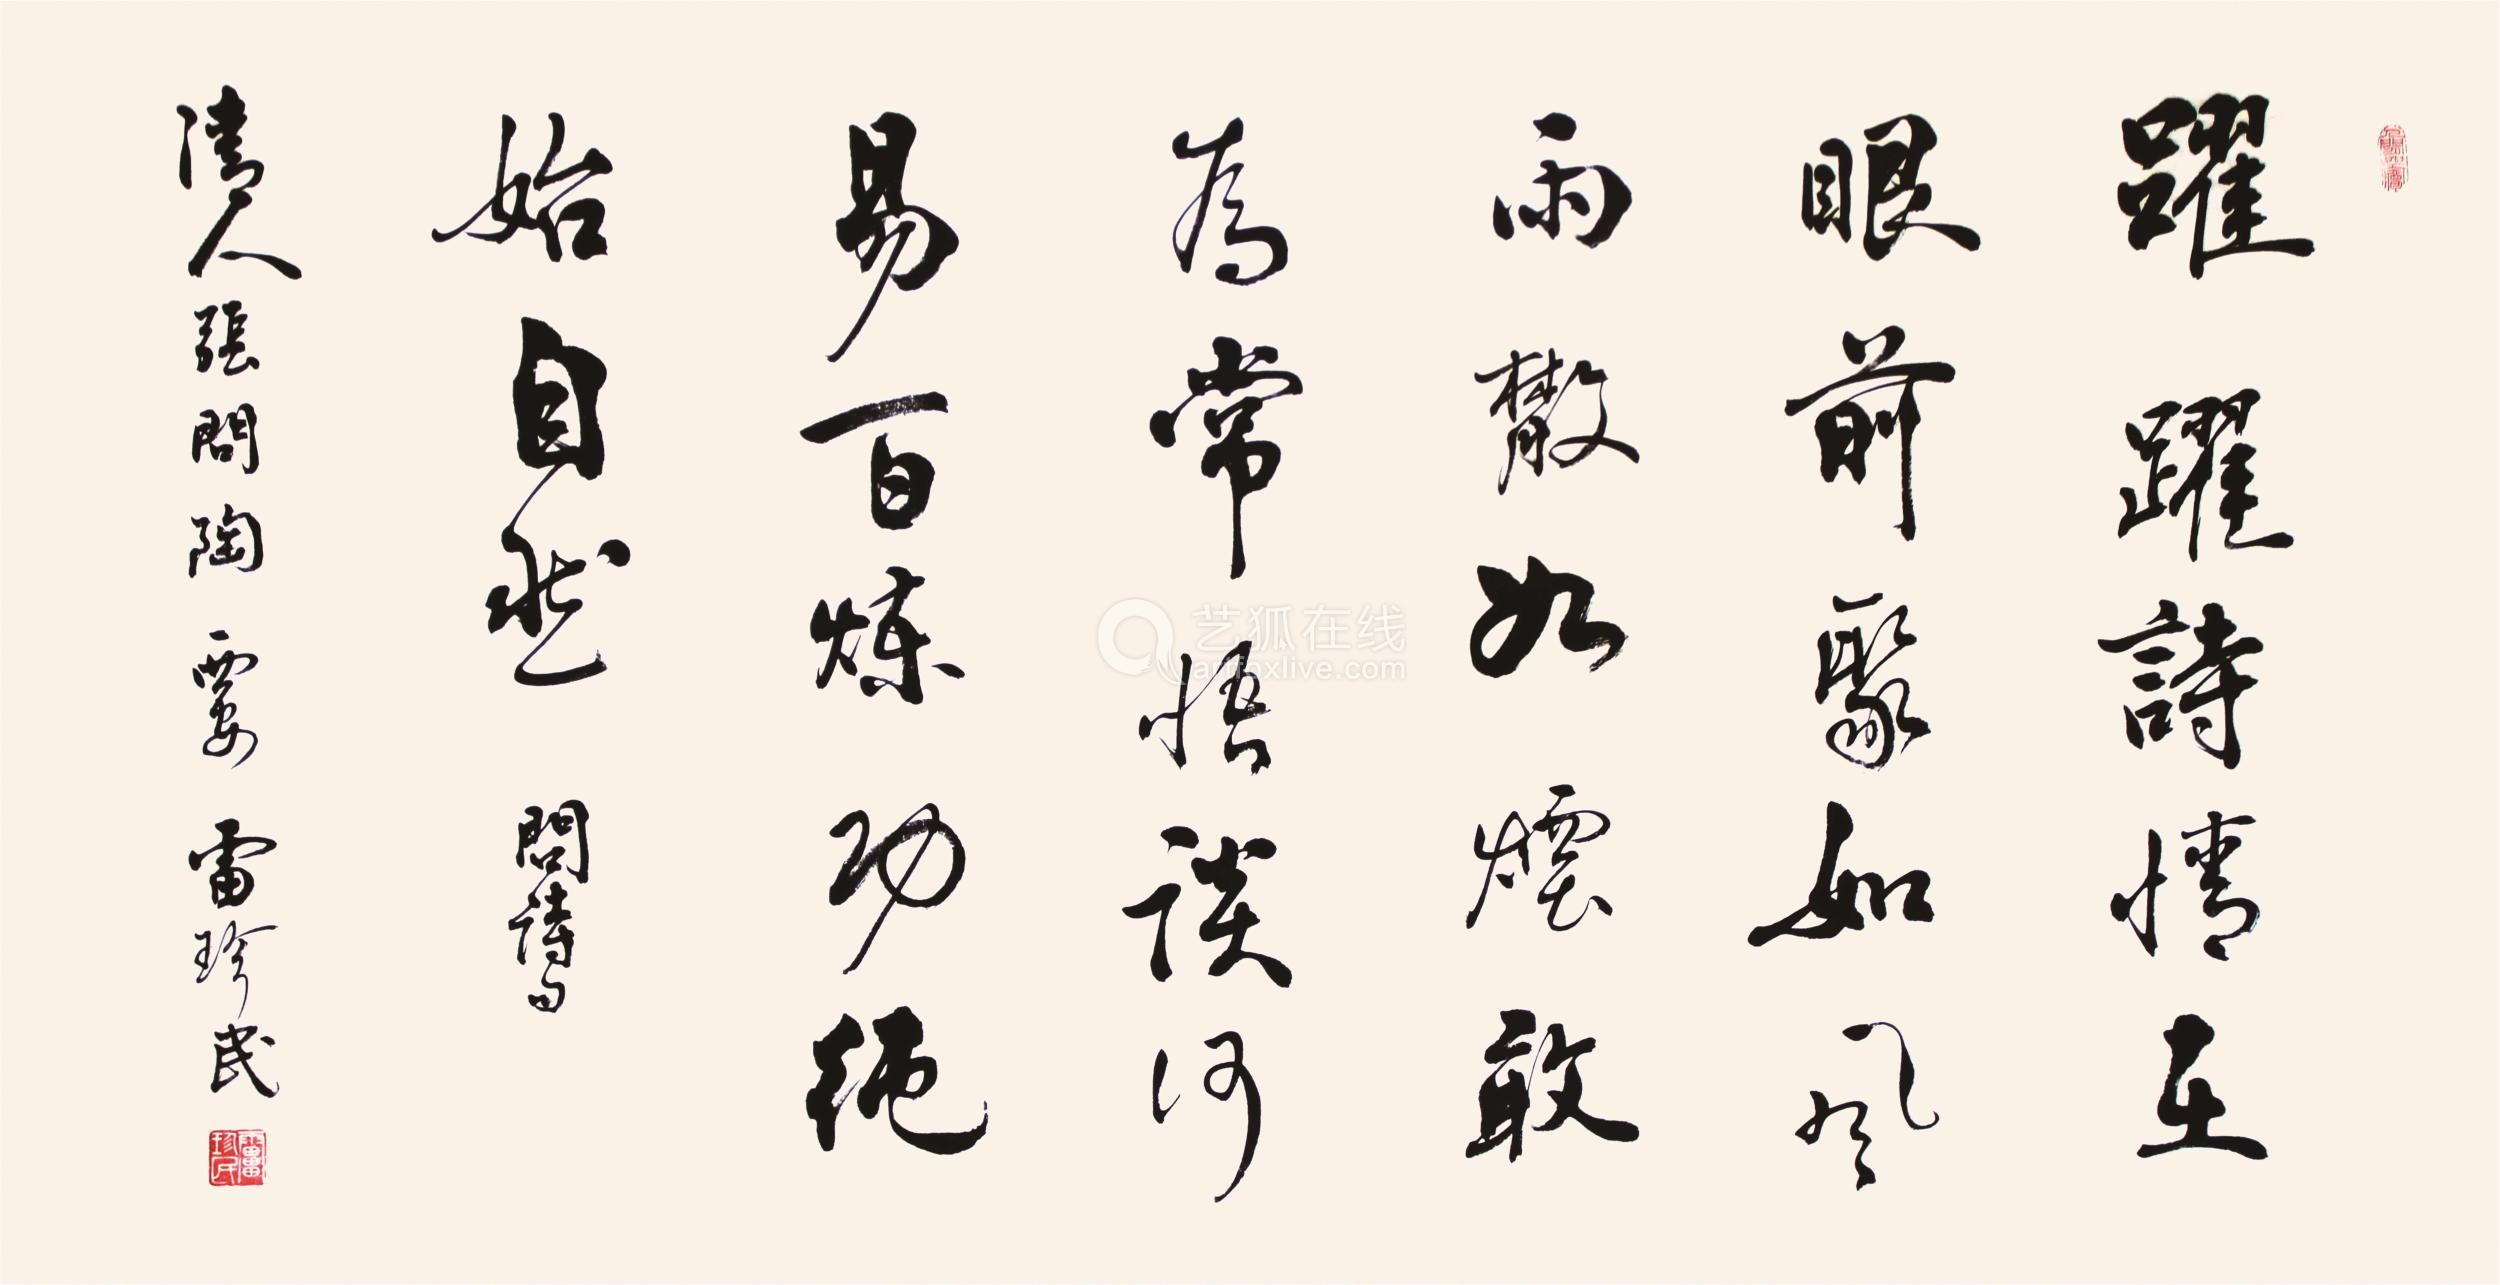 躍躍詩情在
眼前聚如風
雨散如煙敢
為常語談何
易百煉功純
始自然 閬詩鈔
清人張問陶句 雷珍民
雷珍民
艺狐在线
artfoxlive.com